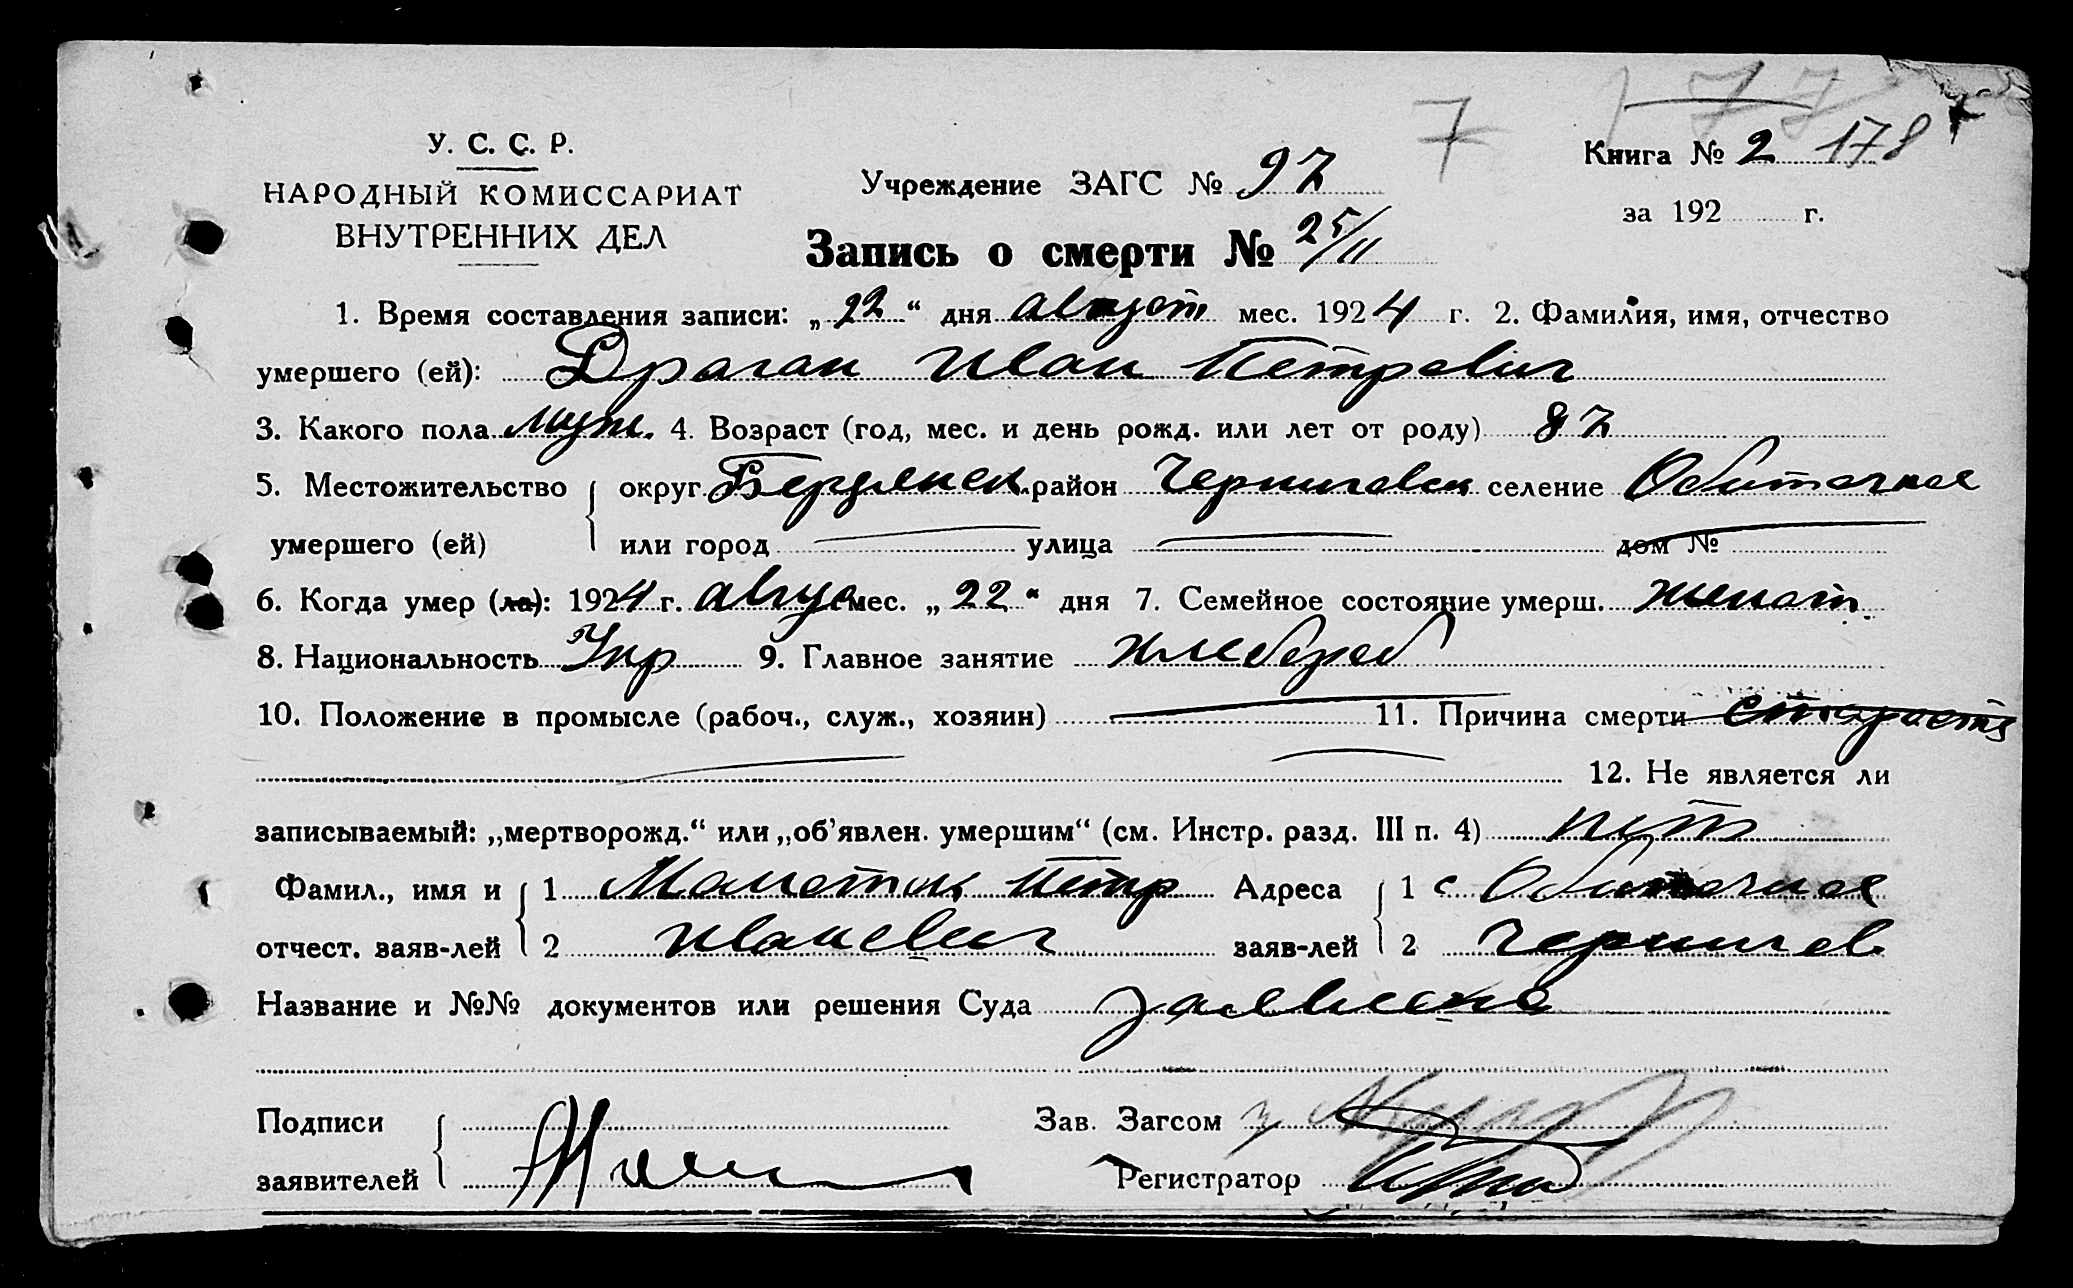 7 177
У. С. С. Р.
НАРОДНЫЙ КОМИССАРИАТ
ВНУТРЕННИХ ДЕЛ
Учреждение ЗАГС № 97
Книга № 2 178
за 192 г.
Запись о смерти № 25/11
1. Время составления записи: „22“ дня август мес. 1924 г. 2. Фамилия, имя, отчество
умершего (ей): Драган Иван Петрович
3. Какого пола муж. 4. Возраст (год, мес. и день рожд. или лет от роду) 87
5. Местожительство округ Бердянск. район Черниговск селение Обиточное
умершего (ей) или город улица дом №
6. Когда умер (ла): 1924 г. август мес. „22“ дня 7. Семейное состояние умерш. женат
8. Национальность Укр 9. Главное занятие хлебороб
10. Положение в промысле (рабоч., служ., хозяин) 11. Причина смерти старость
12. Не является ли
записываемый: „мертворожд.“ или „об’явлен. умершим“ (см. Инстр. разд. III п. 4) нет
Фамил., имя и 1 Петр Адреса 1 с Обиточное
отчест. заяв-лей 2 Иванович заяв-лей 2 Чернигов
Название и №№ документов или решения Суда
Подписи Зав. Загсом
заявителей Регистратор